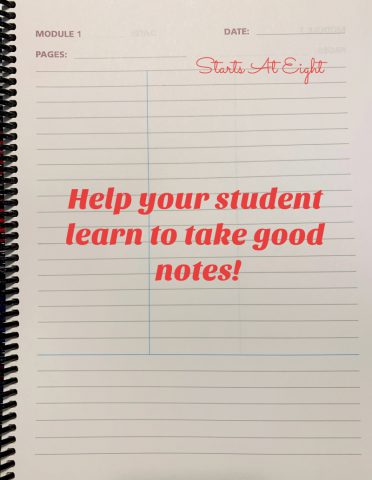 MODULE 1 DATE:
PAGES:
Starts At Eight
Help your student
learn to take good
notes!